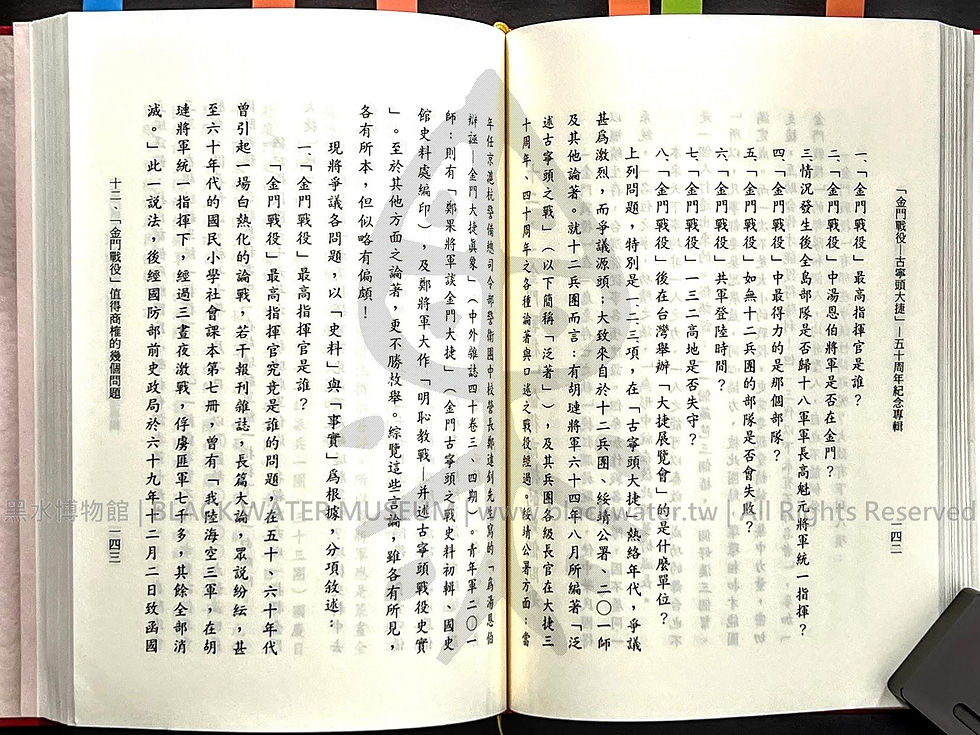 「金門戰役—古寧頭大捷」—五十周年紀念專輯
一四二
一、「金門戰役」最高指揮官是誰？
二、「金門戰役」中湯恩伯將軍是否在金門？
三、情況發生後全島部隊是否歸十八軍軍長高魁元將軍統一指揮？
四、「金門戰役」中最得力的是那個部隊？
五、「金門戰役」如無十二兵團的部隊是否會失敗？
六、「金門戰役」共軍登陸時間？
七、「金門戰役」一三二高地是否失守？
八、「金門戰役」後在台灣舉辦「大捷展覽會」的是什麼單位？
上列問題，特別是一、二、三項，在「古寧頭大捷」熱絡年代，爭議
甚為激烈，而爭議源頭；大致來自於十二兵團、綏靖公署、二〇一師
及其他論著。就十二兵團而言：有胡璉將軍六十四年八月所編著「泛
述古寧頭之戰」（以下簡稱「泛著」），及其兵團各級長官在大捷三
十周年、四十周年之各種論著與口述之戰役經過。綏靖公署方面：當
年任京滬杭警備總司令部警衛團中校營長鄭達釗先生寫的「為湯恩伯
辯誣—金門大捷真象」（中外雜誌四十卷三、四期）。青年軍二〇一
師：則有「鄭果將軍談金門大捷」（金門古寧頭之戰史料初輯、國史
館史料處編印），及鄭將軍大作「明恥教戰—并述古寧頭戰役史實
」。至於其他方面之論著，更不勝枚舉。綜覽這些言論，雖各有所見，
各有所本，但似略有偏頗！
現將爭議各問題，以「史料」與「事實」為根據，分項敘述：
一、「金門戰役」最高指揮官是誰？
「金門戰役」最高指揮官究竟是誰的問題，在五十、六十年代
曾引起一場白熱化的論戰，若干報刊雜誌，長篇大論，眾說紛紜，甚
至六十年代的國民小學社會課本第七冊，曾有「我陸海空三軍，在胡
璉將軍統一指揮下，經過三晝夜激戰，俘虜匪軍七千多，其餘全部消
滅。」此一說法，後經國防部前史政局於六十九年十二月二日致函國
十二、「金門戰役」值得商榷的幾個問題
一四三
黑水博物館 | BLACK WATER MUSEUM | www.blackwater.tw | All Rights Reserved